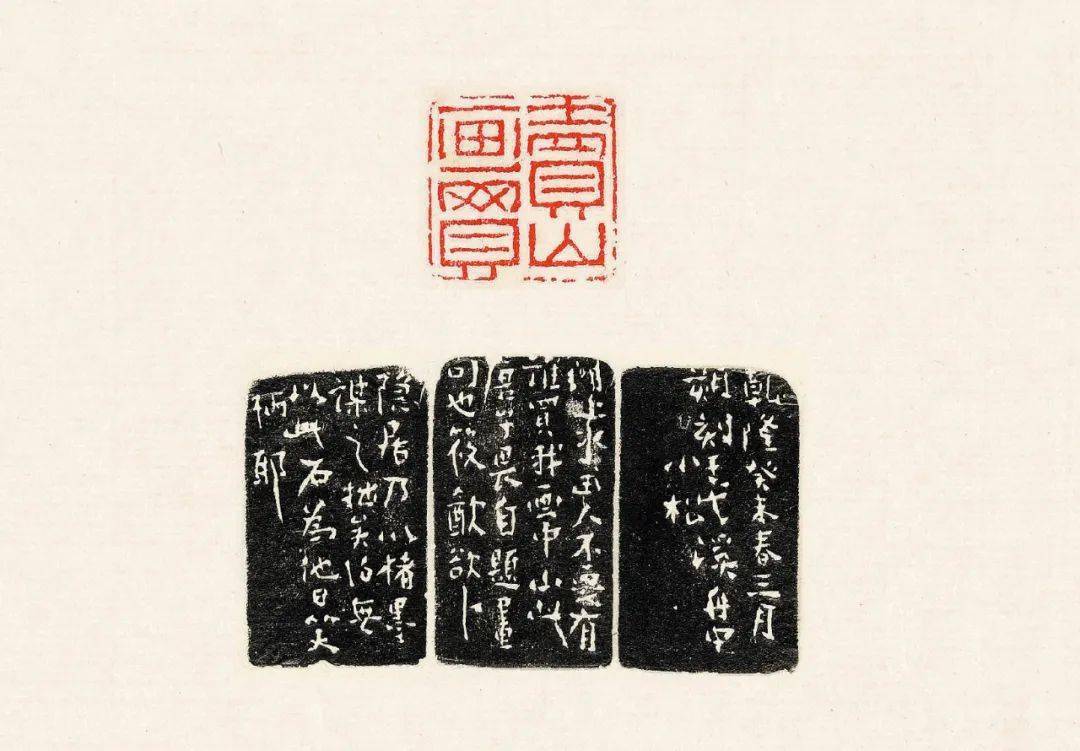 賣畫
買山
乾隆癸未春三月
朔刻於苕溪舟中
小松
湖上水田人不要有
誰買我畫中山此
唐子畏自題畫
句也筱㱃欲卜
隱居乃以楮墨
謀之拙矣得無
以此石為他日笑
柄耶